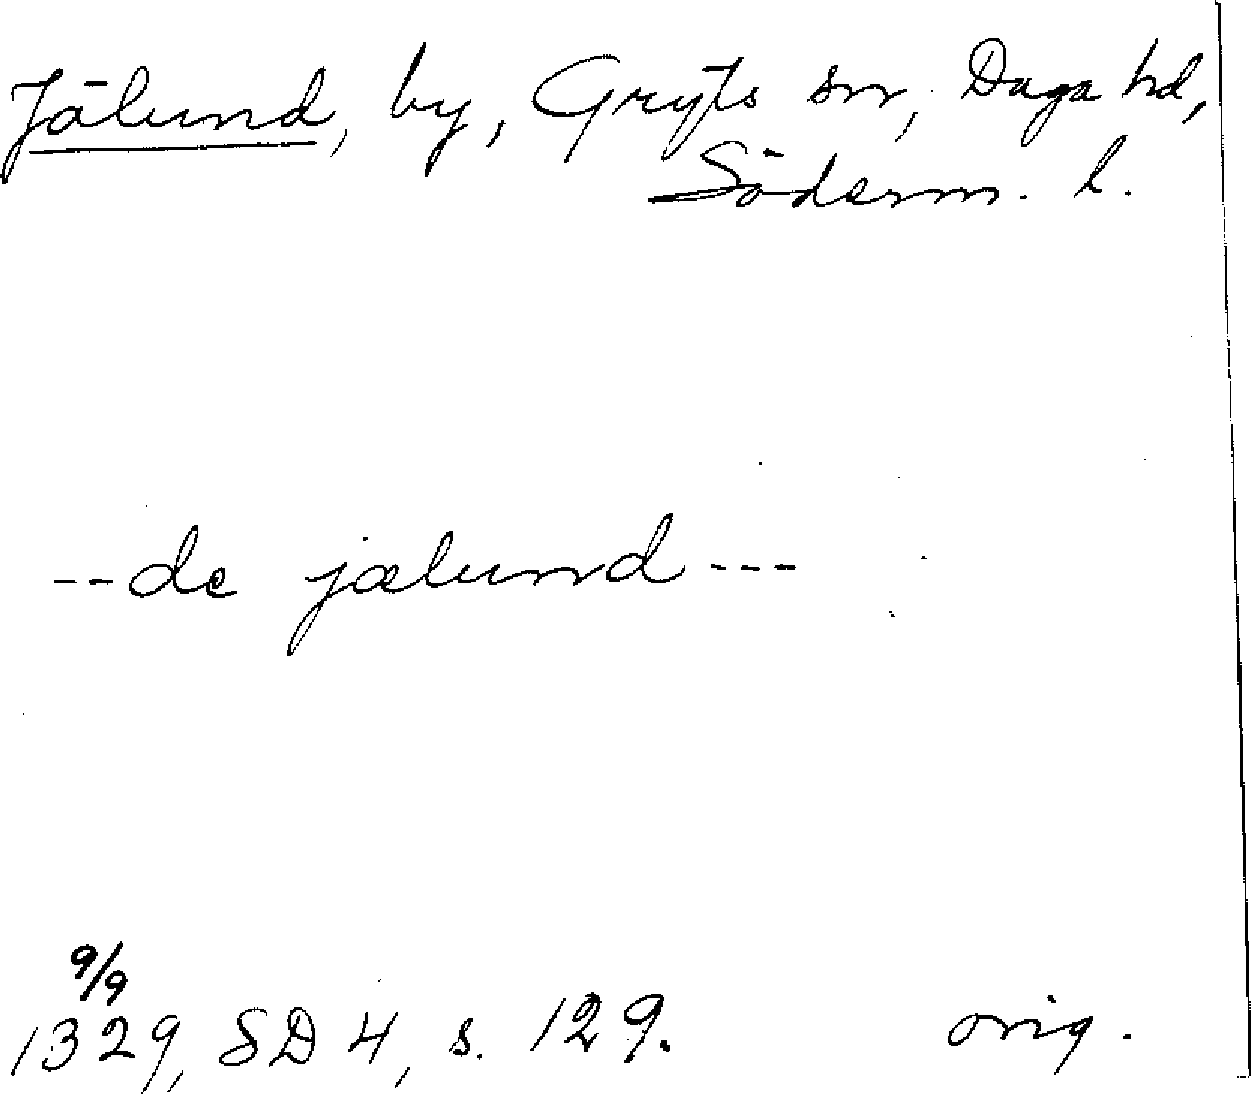 Jälund, by, Gryts sn, Daga hd,
Söderm. l.
--de jælund---
9/9
1329, SD 4, s. 129. orig.